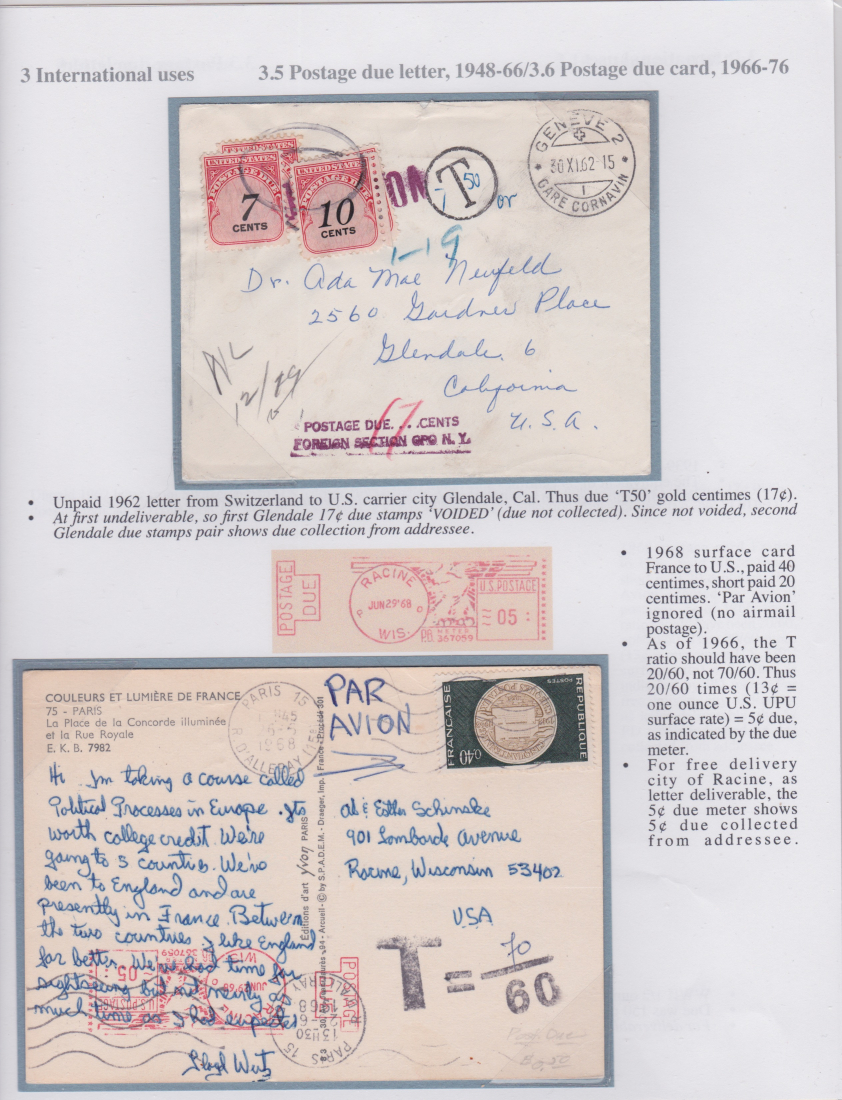 3 International uses
3.5 Postage due letter, 1948-66/3.6 Postage due card, 1966-76
UNITED STATES
POSTAGE DUE
7
CENTS
UNITED STATES
POSTAGE DUE
10
CENTS
ON
T
50
or
GENÈVE 2
30 XI.62-15
1
GARE CORNAVIN
1-19
Dr. Ada Mae Neufeld
2560 Gardner Place
Glendale 6
California
U.S.A.
NL
12/19
POSTAGE DUE. . . .CENTS
17
FOREIGN SECTION GPO N. Y.
• Unpaid 1962 letter from Switzerland to U.S. carrier city Glendale, Cal. Thus due ‘T50’ gold centimes (17¢).
• At first undeliverable, so first Glendale 17¢ due stamps ‘VOIDED’ (due not collected). Since not voided, second
Glendale due stamps pair shows due collection from addressee.
POSTAGE
DUE
RACINE
JUN29'68
WIS.
P.B. METER
367059
U.S. POSTAGE
05
• 1968 surface card
France to U.S., paid 40
centimes, short paid 20
centimes. ‘Par Avion’
ignored (no airmail
postage).
• As of 1966, the T
ratio should have been
20/60, not 70/60. Thus
20/60 times (13¢ =
one ounce U.S. UPU
surface rate) = 5¢ due,
as indicated by the due
meter.
• For free delivery
city of Racine, as
letter deliverable, the
5¢ due meter shows
5¢ due collected
from addressee.
COULEURS ET LUMIÈRE DE FRANCE
75 - PARIS
La Place de la Concorde illuminée
et la Rue Royale
E. K. B. 7982
PARIS 15
1968
R. D'ALLERAY
PAR
AVION
POSTES
RÉPUBLIQUE FRANÇAISE
0,40
Hi I'm taking a course called
Political Processes in Europe. Its
worth college credit. We're
going to 5 countries. We've
been to England and are
presently in France. Between
the two countries I like England
far better. We've had time for
sightseeing but not nearly as
much time as I had expected
Lloyd
Al & Esther Schinske
901 Lombard Avenue
Racine, Wisconsin 53402
USA
Éditions d'art yvon PARIS
Draeger, Imp.
© by S.P.A.D.E.M.
T = 70
60
POSTAGE
DUE
JUN29'68
WIS
367059
U.S. POSTAGE
05
PARIS 15
13H30
1968